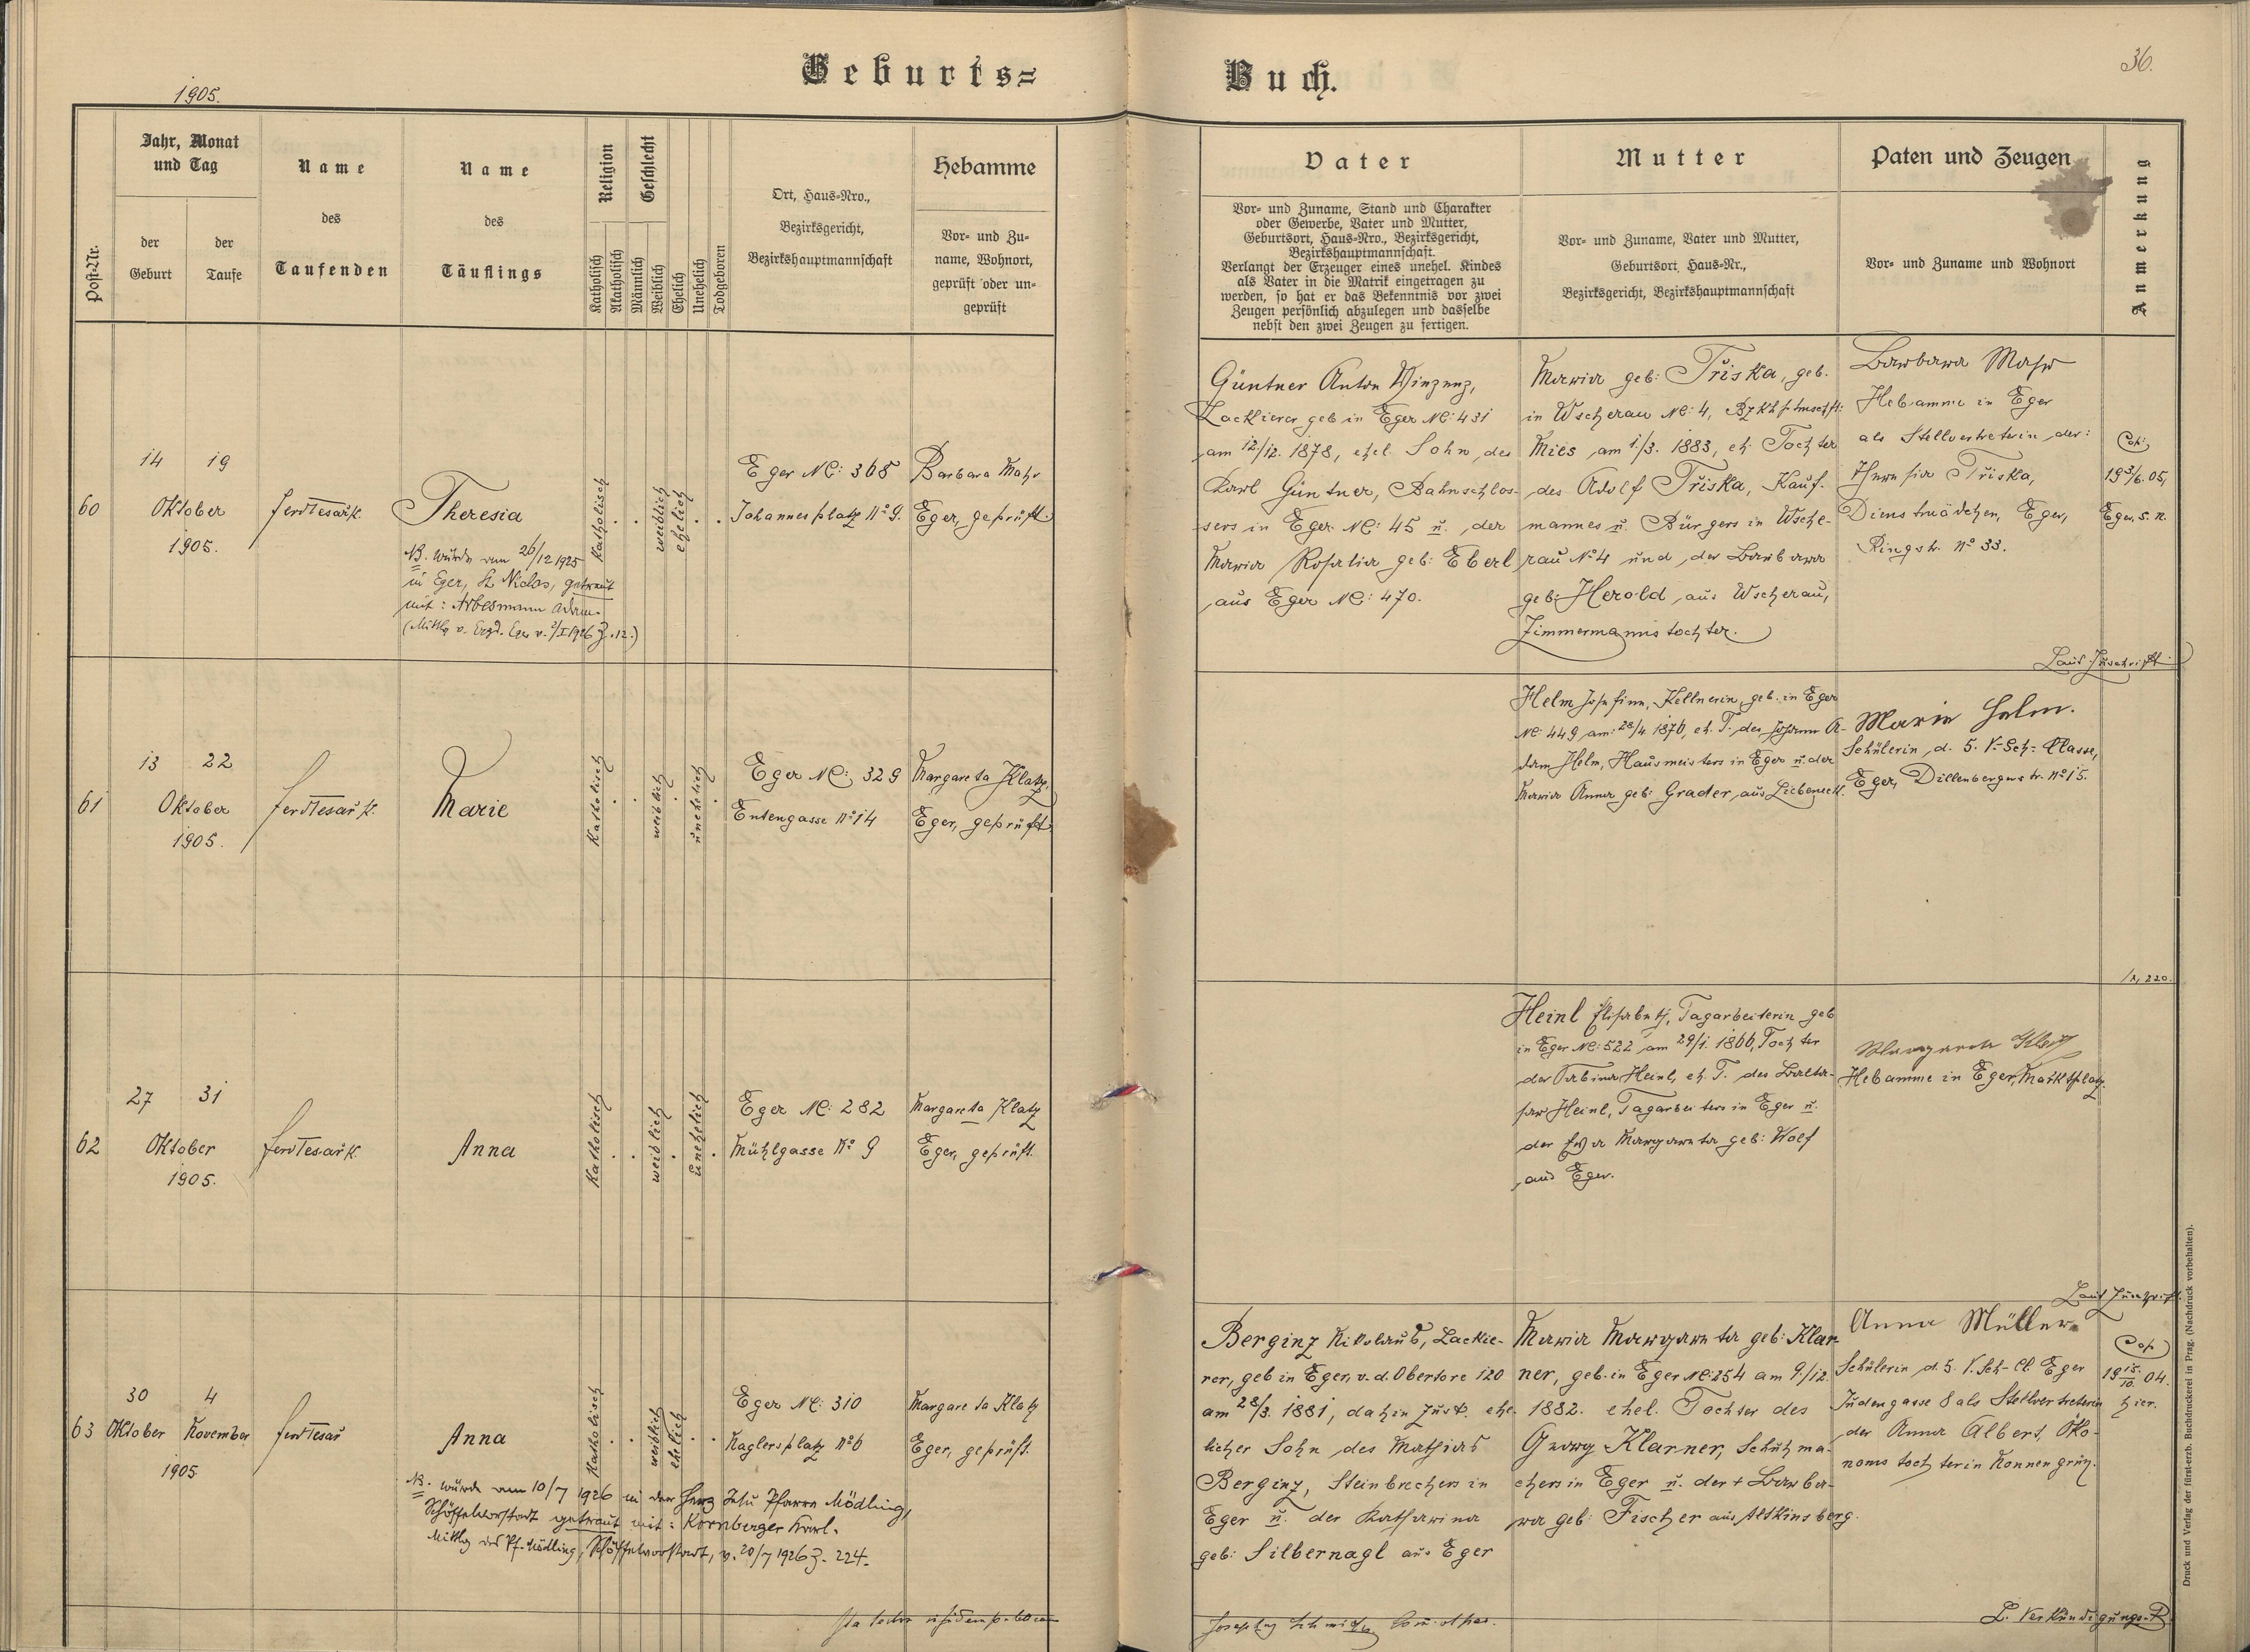 Geburts=
Buch.
36.
1905.
Post-Nr.
Jahr, Monat
und Tag
der
Geburt
der
Taufe
Name
des
Taufenden
Name
des
Täuflings
Religion
Geschlecht
Katholisch
Akatholisch
Männlich
Weiblich
Ehelich
Unehelich
Todgeboren
Ort, Haus-Nro.,
Bezirksgericht,
Bezirkshauptmannschaft
Hebamme
Vor- und Zu-
name, Wohnort,
geprüft oder un-
geprüft
Vater
Vor- und Zuname, Stand und Charakter
oder Gewerbe, Vater und Mutter,
Geburtsort, Haus-Nro., Bezirksgericht,
Bezirkshauptmannschaft.
Verlangt der Erzeuger eines unehel. Kindes
als Vater in die Matrik eingetragen zu
werden, so hat er das Bekenntnis vor zwei
Zeugen persönlich abzulegen und dasselbe
nebst den zwei Zeugen zu fertigen.
Mutter
Vor- und Zuname, Vater und Mutter,
Geburtsort, Haus-Nr.,
Bezirksgericht, Bezirkshauptmannschaft
Paten und Zeugen
Vor- und Zuname und Wohnort
Anmerkung
60
14 19
Oktober
1905.
Ferd Tesař k.
Theresia
NB. wurde am 26/12 1925
in Eger, St. Niclas, getraut
mit: Arbesmann Adam.
Katholisch
weiblich
ehelich
Eger NC: 368
Johannesplatz No 9.
Barbara Mahr
Eger, geprüft.
Güntner Anton Vinzenz,
Lackierer geb in Eger NC: 431
am 12/12. 1878, ehel. Sohn des
Karl Güntner, Bahnschlos-
sers in Eger NC: 45 u. der
Maria Rosalia geb: Eberl
aus Eger NC: 470.
Maria geb: Třiska, geb.
in Wscherau NC: 4, Bzkhptmschft:
Mies am 1/3. 1883, eh. Tochter
des Adolf Třiska, Kauf-
mannes u. Bürgers in Wsche-
rau No 4 und der Barbara
geb: Herold aus Wscherau,
Zimmermannstochter.
Barbara Mahr
Hebamme in Eger
als Stellvertreterin der:
Theresia Třiska,
Dienstmädchen, Eger,
Ringstr. No 33.
Cop:
19 3/6. 05,
Eger, s. n.
Laut Zuschrift
61
13 22
Oktober
1905.
Ferd Tesař k.
Marie
Katholisch
weiblich
unehelich
Eger NC: 329
Entengasse No 14
Margareta Klatz,
Eger, geprüft
Helm Josefine, Kellnerin, geb. in Eger
NC: 449 am: 28/4. 1876, eh. T. des Johann A-
dam Helm, Hausmeisters in Eger u. der
Maria Anna geb: Grader, aus Liebeneck.
Marie Helm.
Schülerin d. 5. V-Sch-Classe,
Eger, Dillenbergerstr. No 15.
62
27 31
Oktober
1905.
Ferd Tesař k.
Anna
Katholisch
weiblich
unehelich
Eger NC: 282
Mühlgasse No 9
Margareta Klatz
Eger, geprüft.
Heinl Elisabeth, Tagarbeiterin geb
in Eger NC: 522 am 29/1. 1866, Tochter
der Sabina Heinl, eh. T. des Baltha-
sar Heinl, Tagarbeiters in Eger u.
der Eva Margareta geb: Wolf
aus Eger.
Hebamme in Eger, Marktplatz.
Laut Zuschrift.
63
30 4
Oktober November
1905.
Ferd Tesař
Anna
NB. wurde am 10/7 1926 in der Herz Jesu Pfarre Mödling,
Schöffelvorstadt getraut mit: Kornberger Karl.
Mittlg des Pf. Mödling, Schöffelvorstadt, v. 20/7 1926 Z. 224.
Katholisch
weiblich
ehelich
Eger NC: 310
Kaglersplatz No 6
Margareta Klatz
Eger, geprüft.
Berginz Nikolaus, Lackie-
rer, geb in Eger, v. d. Obertore 120
am 28/3. 1881, dahin zust. ehe-
licher Sohn des Mathias
Berginz, Steinbrechers in
Eger u. der Katharina
geb: Silbernagl aus Eger
Maria Margareta geb: Klar-
ner, geb. in Eger NC: 254 am 9./12.
1882. ehel. Tochter des
Georg Klarner, Schuhma-
chers in Eger u. der + Barba-
ra geb: Fischer aus Altkinsberg.
Anna Müller
Schülerin d. 5. V. Sch-Cl. Eger
Judengasse 8 als Stellvertreterin
der Anna Albert, Öko-
nomstochter in Konnengrün.
Cop
19 15/10 04.
hier.
L. Verkündigungs-P.
Druck und Verlag der fürst-erzb. Buchdruckerei in Prag. (Nachdruck vorbehalten).